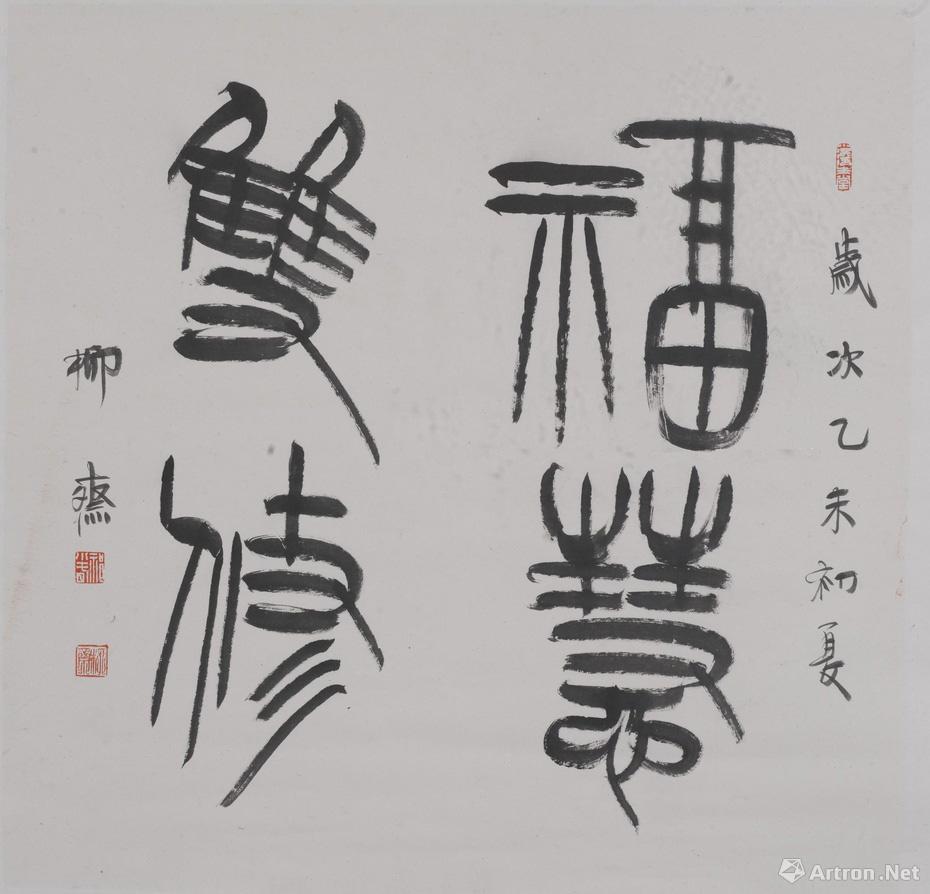 歲次乙未初夏
福慧
雙修
柳齋
Artron.Net